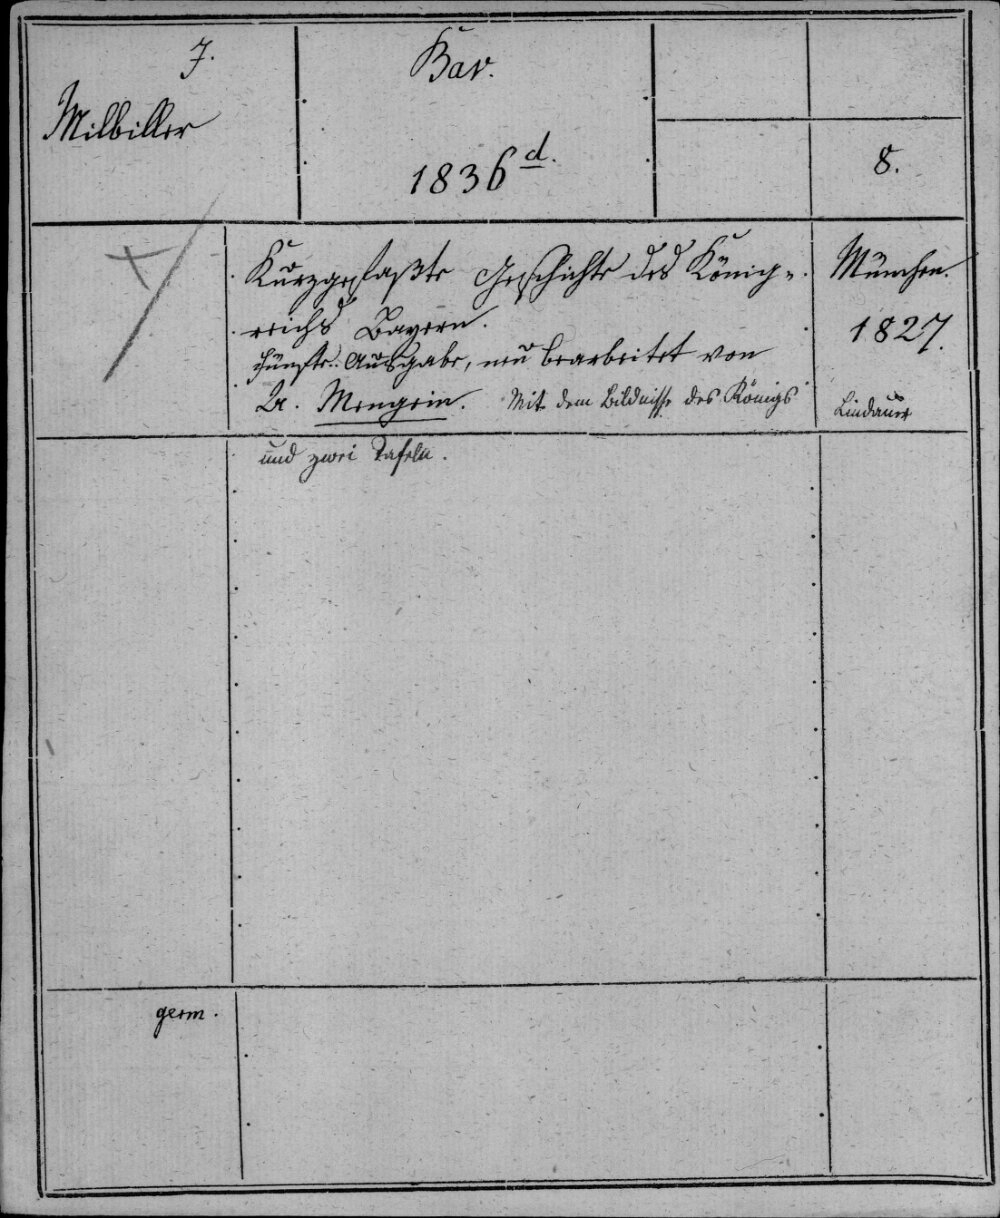 J.
Milbiller
Bav.
1836 d.
8.
Kurzgefaßte Geschichte des König-
reichs Bayern.
Fünfte Ausgabe, neu bearbeitet von
A. Mengein. Mit dem Bildnisse des Königs
und zwei Tafeln.
München.
1827.
Lindauer
germ.